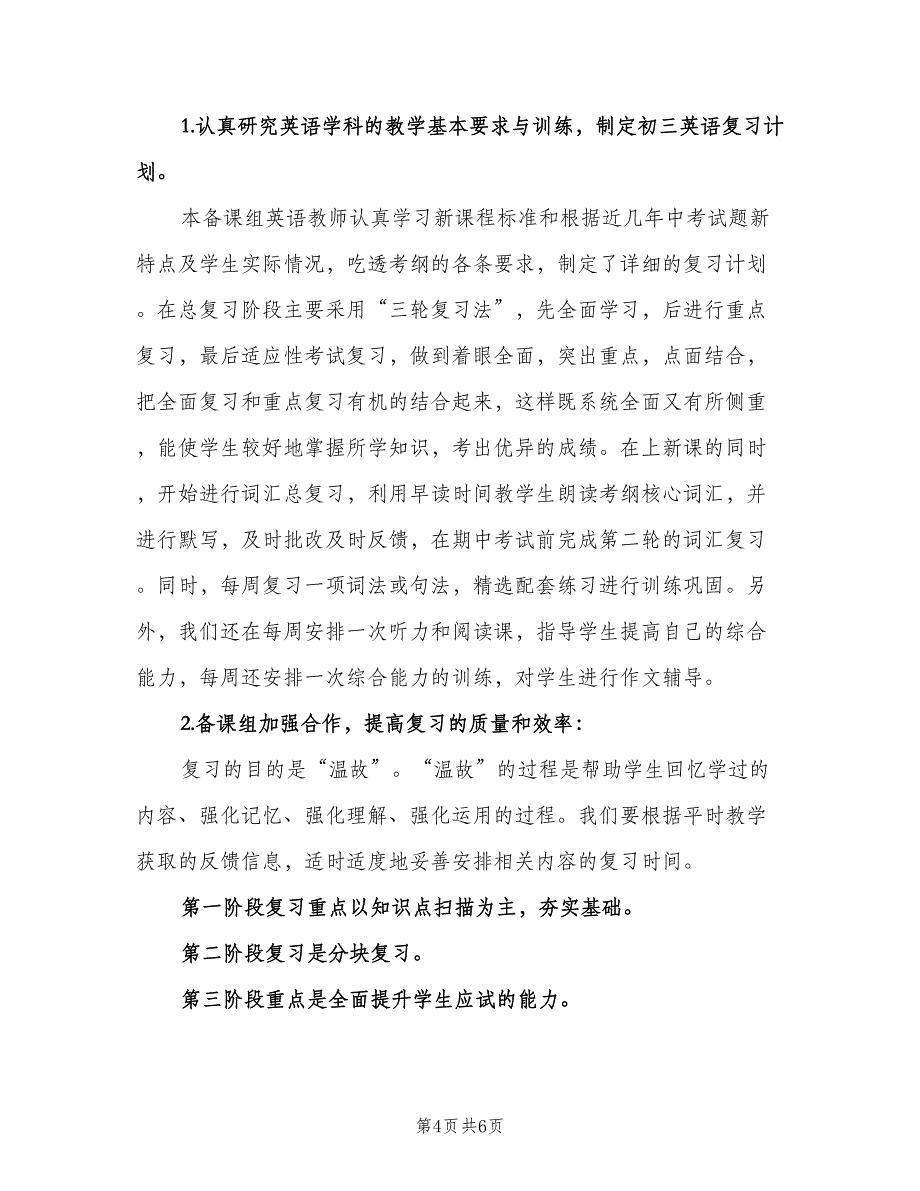 1.认真研究英语学科的教学基本要求与训练，制定初三英语复习计
划。
本备课组英语教师认真学习新课程标准和根据近几年中考试题新
特点及学生实际情况，吃透考纲的各条要求，制定了详细的复习计划
。在总复习阶段主要采用“三轮复习法”，先全面学习，后进行重点
复习，最后适应性考试复习，做到着眼全面，突出重点，点面结合，
把全面复习和重点复习有机的结合起来，这样既系统全面又有所侧重
，能使学生较好地掌握所学知识，考出优异的成绩。在上新课的同时
，开始进行词汇总复习，利用早读时间教学生朗读考纲核心词汇，并
进行默写，及时批改及时反馈，在期中考试前完成第二轮的词汇复习
。同时，每周复习一项词法或句法，精选配套练习进行训练巩固。另
外，我们还在每周安排一次听力和阅读课，指导学生提高自己的综合
能力，每周还安排一次综合能力的训练，对学生进行作文辅导。
2.备课组加强合作，提高复习的质量和效率：
复习的目的是“温故”。“温故”的过程是帮助学生回忆学过的
内容、强化记忆、强化理解、强化运用的过程。我们要根据平时教学
获取的反馈信息，适时适度地妥善安排相关内容的复习时间。
第一阶段复习重点以知识点扫描为主，夯实基础。
第二阶段复习是分块复习。
第三阶段重点是全面提升学生应试的能力。
第4页 共6页